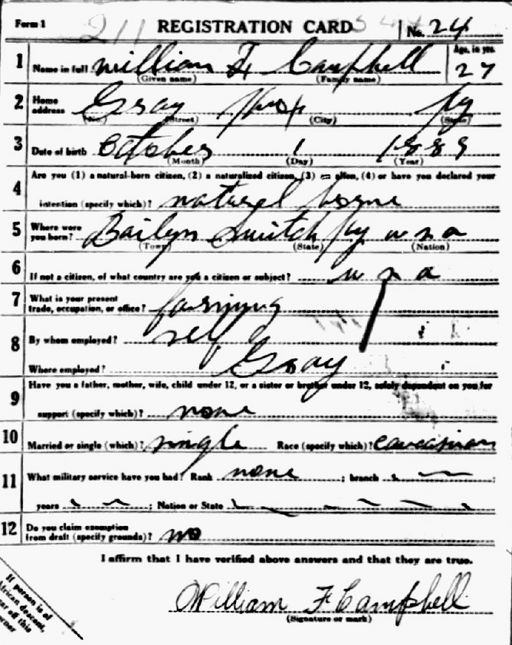 Form 1 211 REGISTRATION CARD No. 24
1 Name in full William F Campbell Age, in yrs. 27
(Given name) (Family name)
2 Home address Gray Knox Ky
(No.) (Street) (City) (State)
3 Date of birth October 1 1889
(Month) (Day) (Year)
4 Are you (1) a natural-born citizen, (2) a naturalized citizen, (3) an alien, (4) or have you declared your
intention (specify which)? natural borne
5 Where were you born? Bailyn Switch Ky u s a
(Town) (State) (Nation)
6 If not a citizen, of what country are you a citizen or subject? u s a
7 What is your present trade, occupation, or office? farming
8 By whom employed? self
Where employed? Gray
9 Have you a father, mother, wife, child under 12, or a sister or brother under 12, solely dependent on you for
support (specify which)? none
10 Married or single (which)? single Race (specify which)? caucasian
11 What military service have you had? Rank none ; branch
years ; Nation or State
12 Do you claim exemption from draft (specify grounds)? no
I affirm that I have verified above answers and that they are true.
William F Campbell
(Signature or mark)
If person is of
African descent,
this
corner